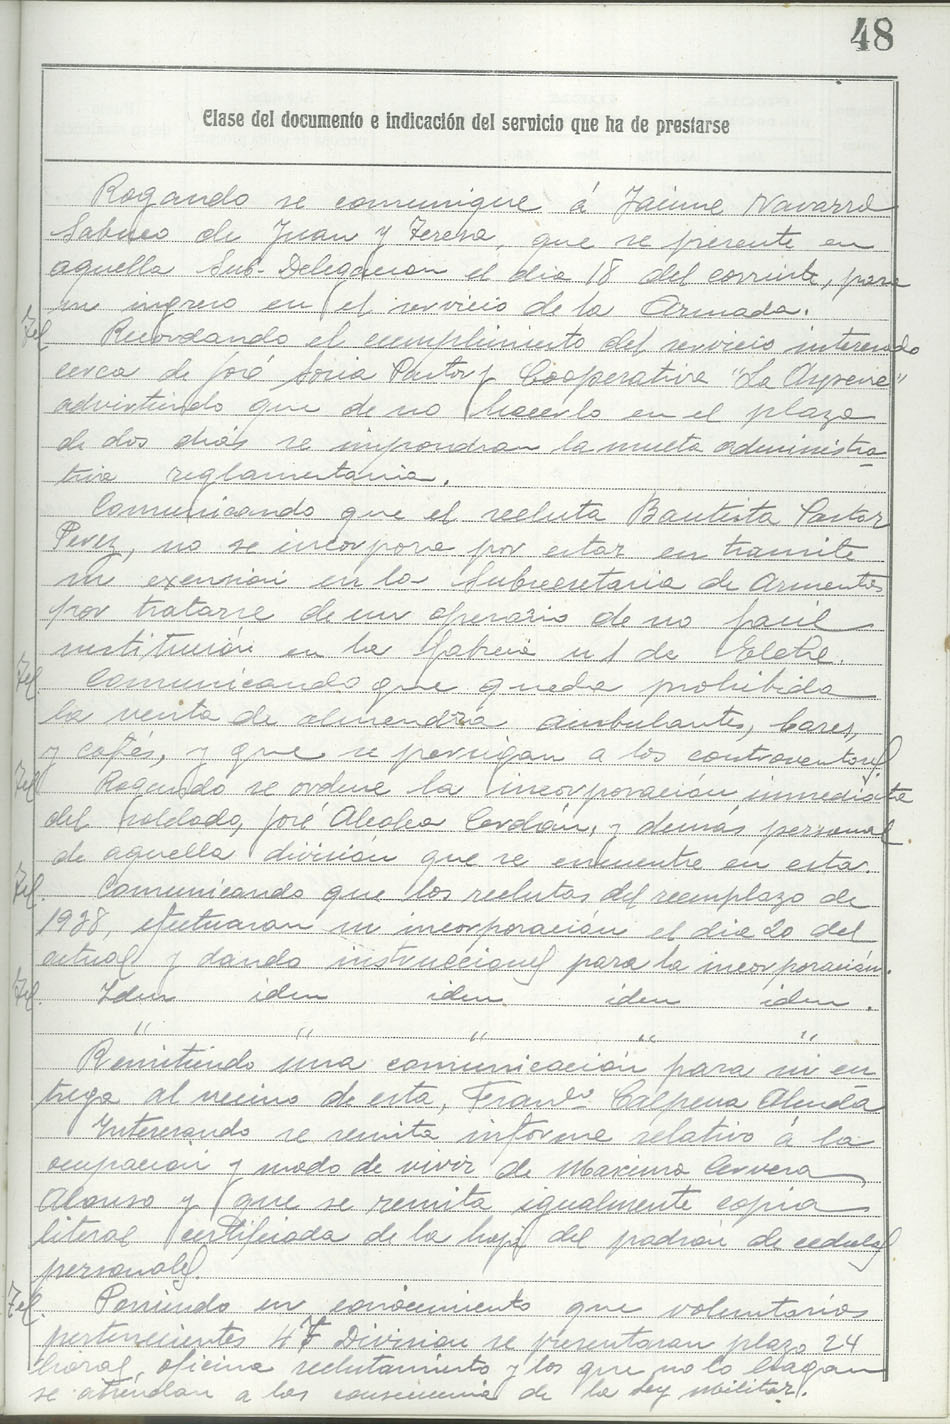 48
Clase del documento e indicación del servicio que ha de prestarse
Rogando se comunique á Jaime Navarro
Sabuco de Juan y Teresa, que se presente en
aquella Sub-Delegacion el dia 18 del corriente, para
su ingreso en el servicio de la Armada.
Tel Recordando el cumplimiento del servicio interesado
cerca de José Soria Pastor y Cooperativa "La
advirtiendo que de no hacerlo en el plazo
de dos dias se impondran la multa administra
tiva reglamentaria.
Comunicando que el recluta Bautista Pastor
Perez, no se incorpora por estar en tramite
su exension en la Subsecretaria de Armentos
por tratarse de un operario de no facil
sustitución en la fabrica nº 1 de Elche.
Tel Comunicando que queda prohibida
la venta de almendra ambulantes, bares,
y cafés, y que se persigan a los contraventores
Tel Rogando se ordene la incorporación inmediata
del soldado, José Alcolea Cerdán, y demás personal
de aquella división que se encuentre en esta.
Tel. Comunicando que los reclutas del reemplazo de
1928, efectuaran su incorporación el dia 20 del
actual y dando instrucciones para la incorporación.
Tel. Iden iden iden iden iden.
" " " " "
Remitiendo una comunicación para su en
trega al vecino de esta, Franco Calpena Alenda
Interesando se remita informe relativo á la
ocupacion y modo de vivir de Maximo Cervera
Alonso y que se remita igualmente copia
literal certificada de la hoja del padrón de cedulas
personales.
Tel. Poniendo en conocimiento que voluntarios
pertenecientes 47 Division se presentaran plazo 24
horas, oficina reclutamiento y los que no lo hagan
se atiendan a las consecuencia de la Ley militar.